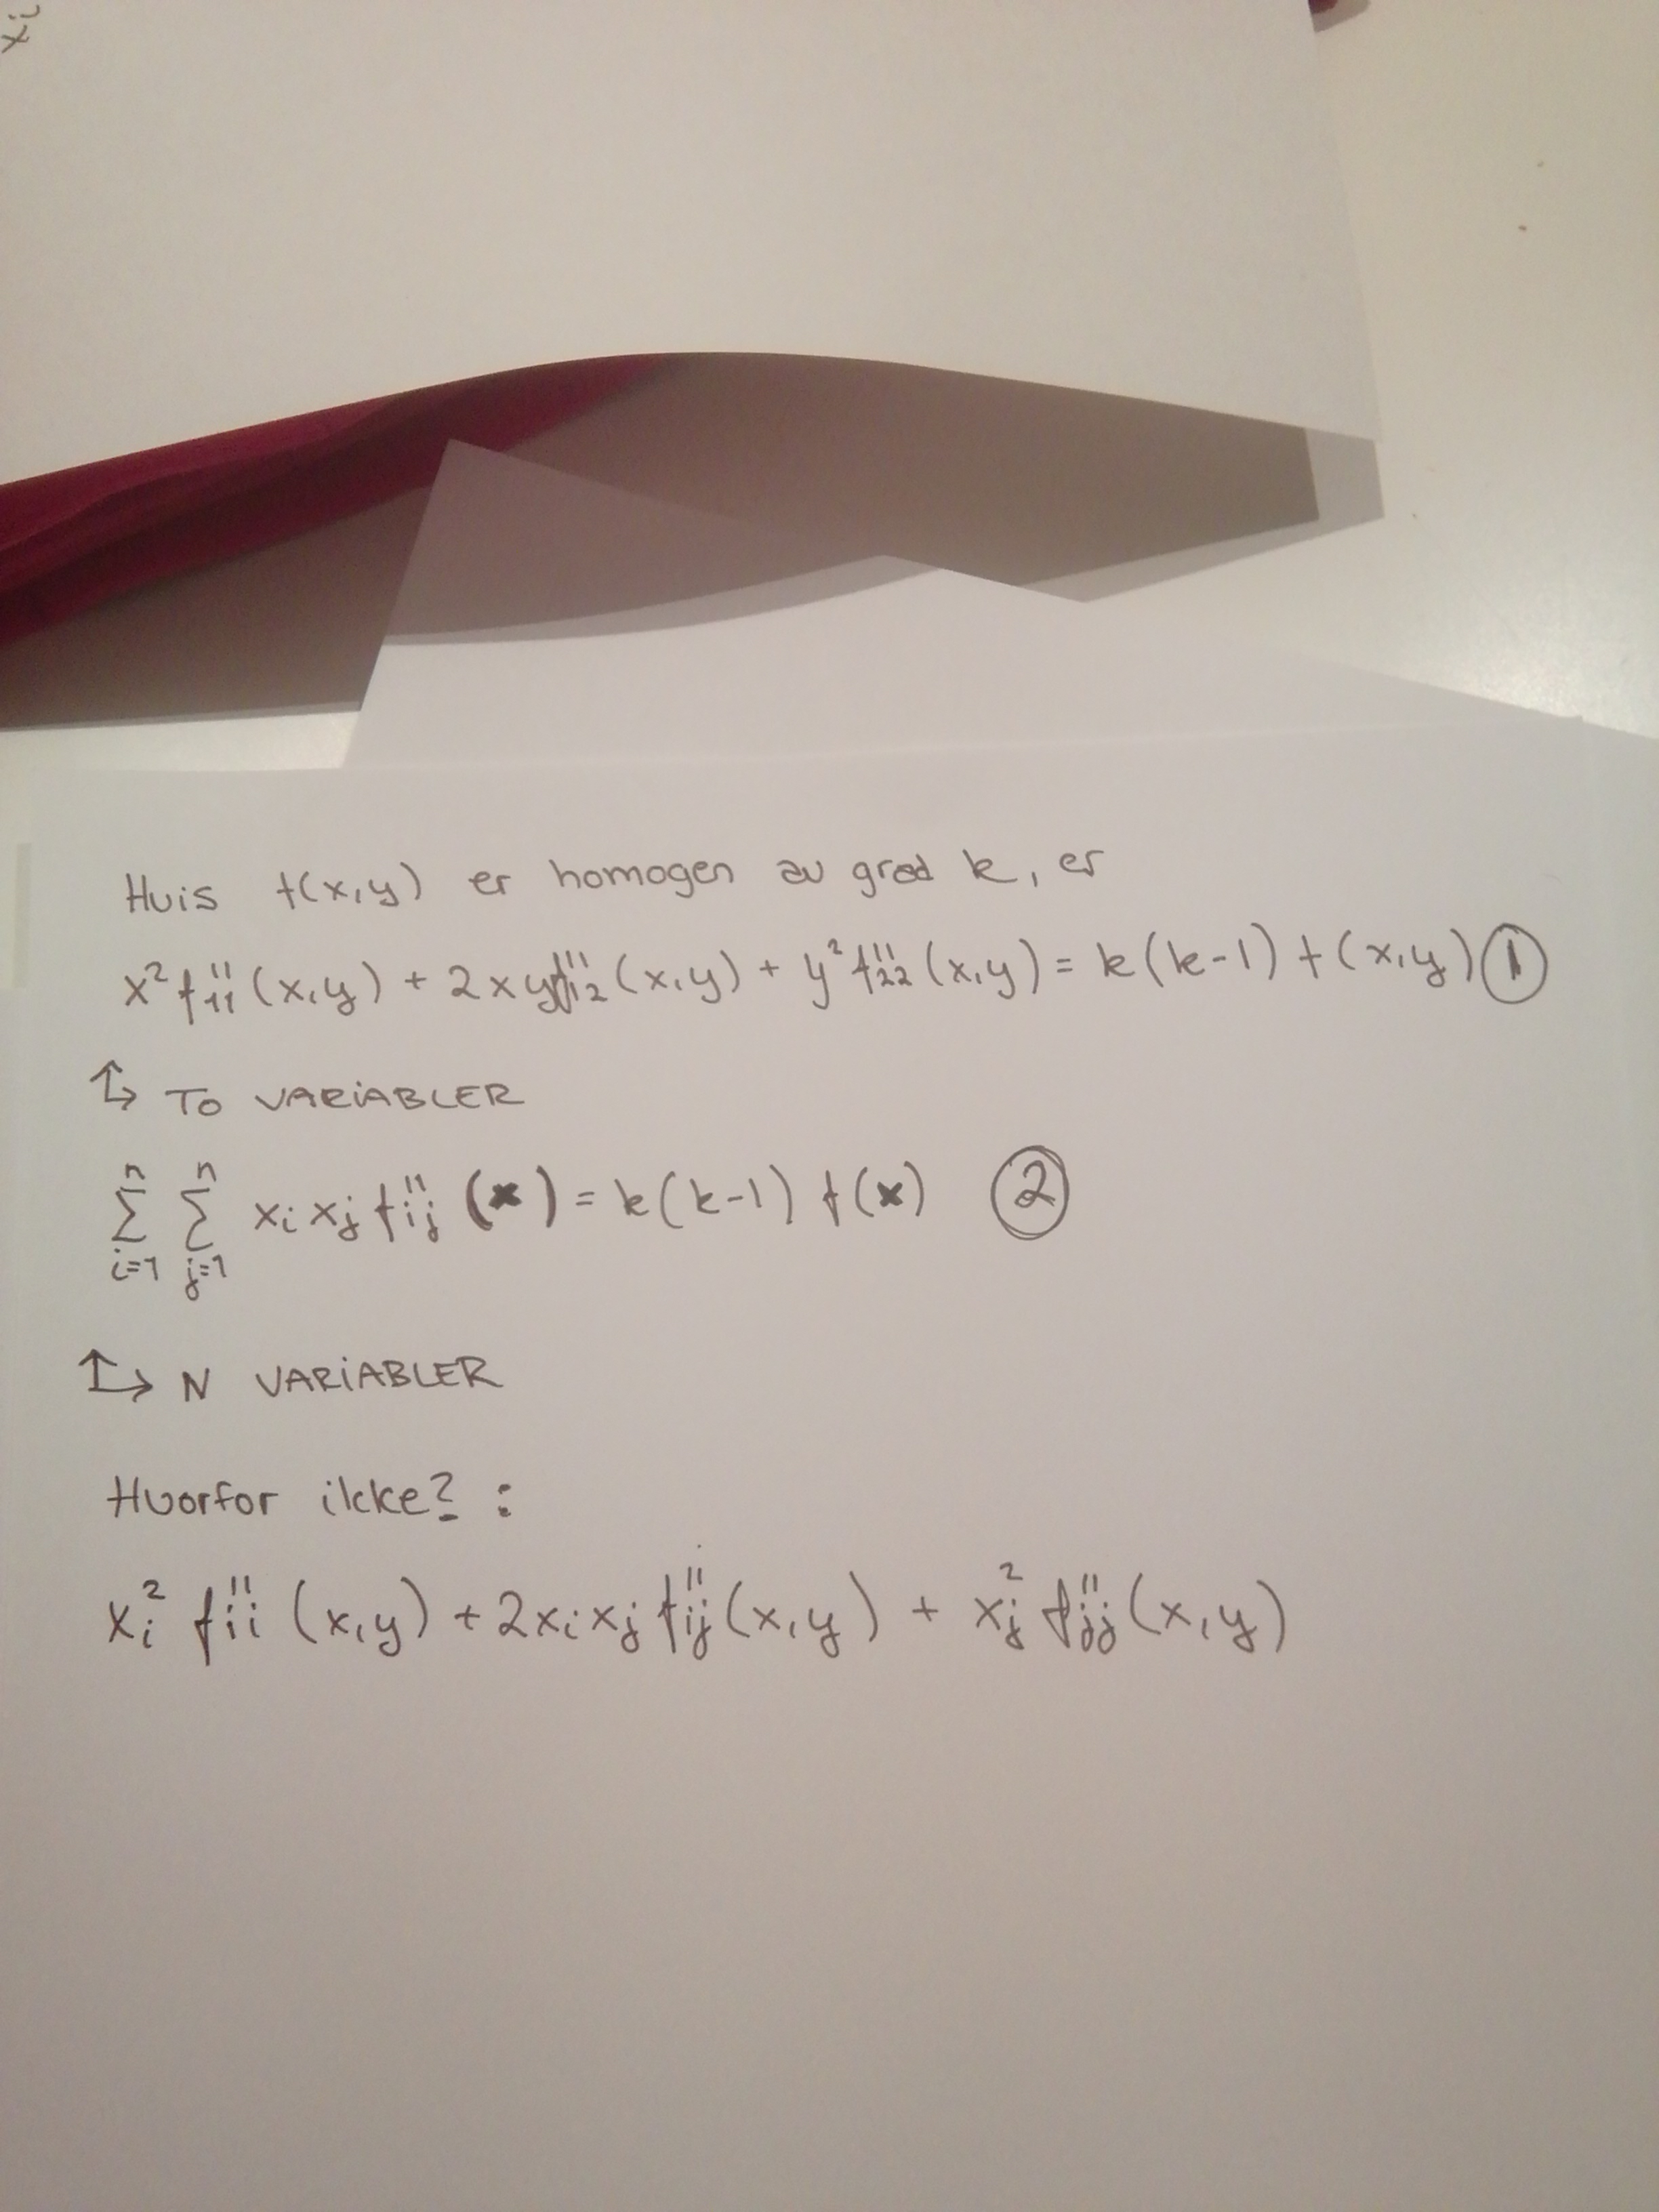 ẍ
Hvis f(x,y) er homogen av grad k, er
x² f''₁₁ (x,y) + 2xy f''₁₂ (x,y) + y² f''₂₂ (x,y) = k(k-1) f(x,y) ①
↳ TO VARiABLER
n n
Σ Σ xᵢ xⱼ f''ᵢⱼ (x) = k(k-1) f(x) ②
i=1 j=1
↳ N VARiABLER
Hvorfor ikke? :
xᵢ² f''ᵢᵢ (x,y) + 2xᵢxⱼ f''ᵢⱼ (x,y) + xⱼ² f''ⱼⱼ (x,y)